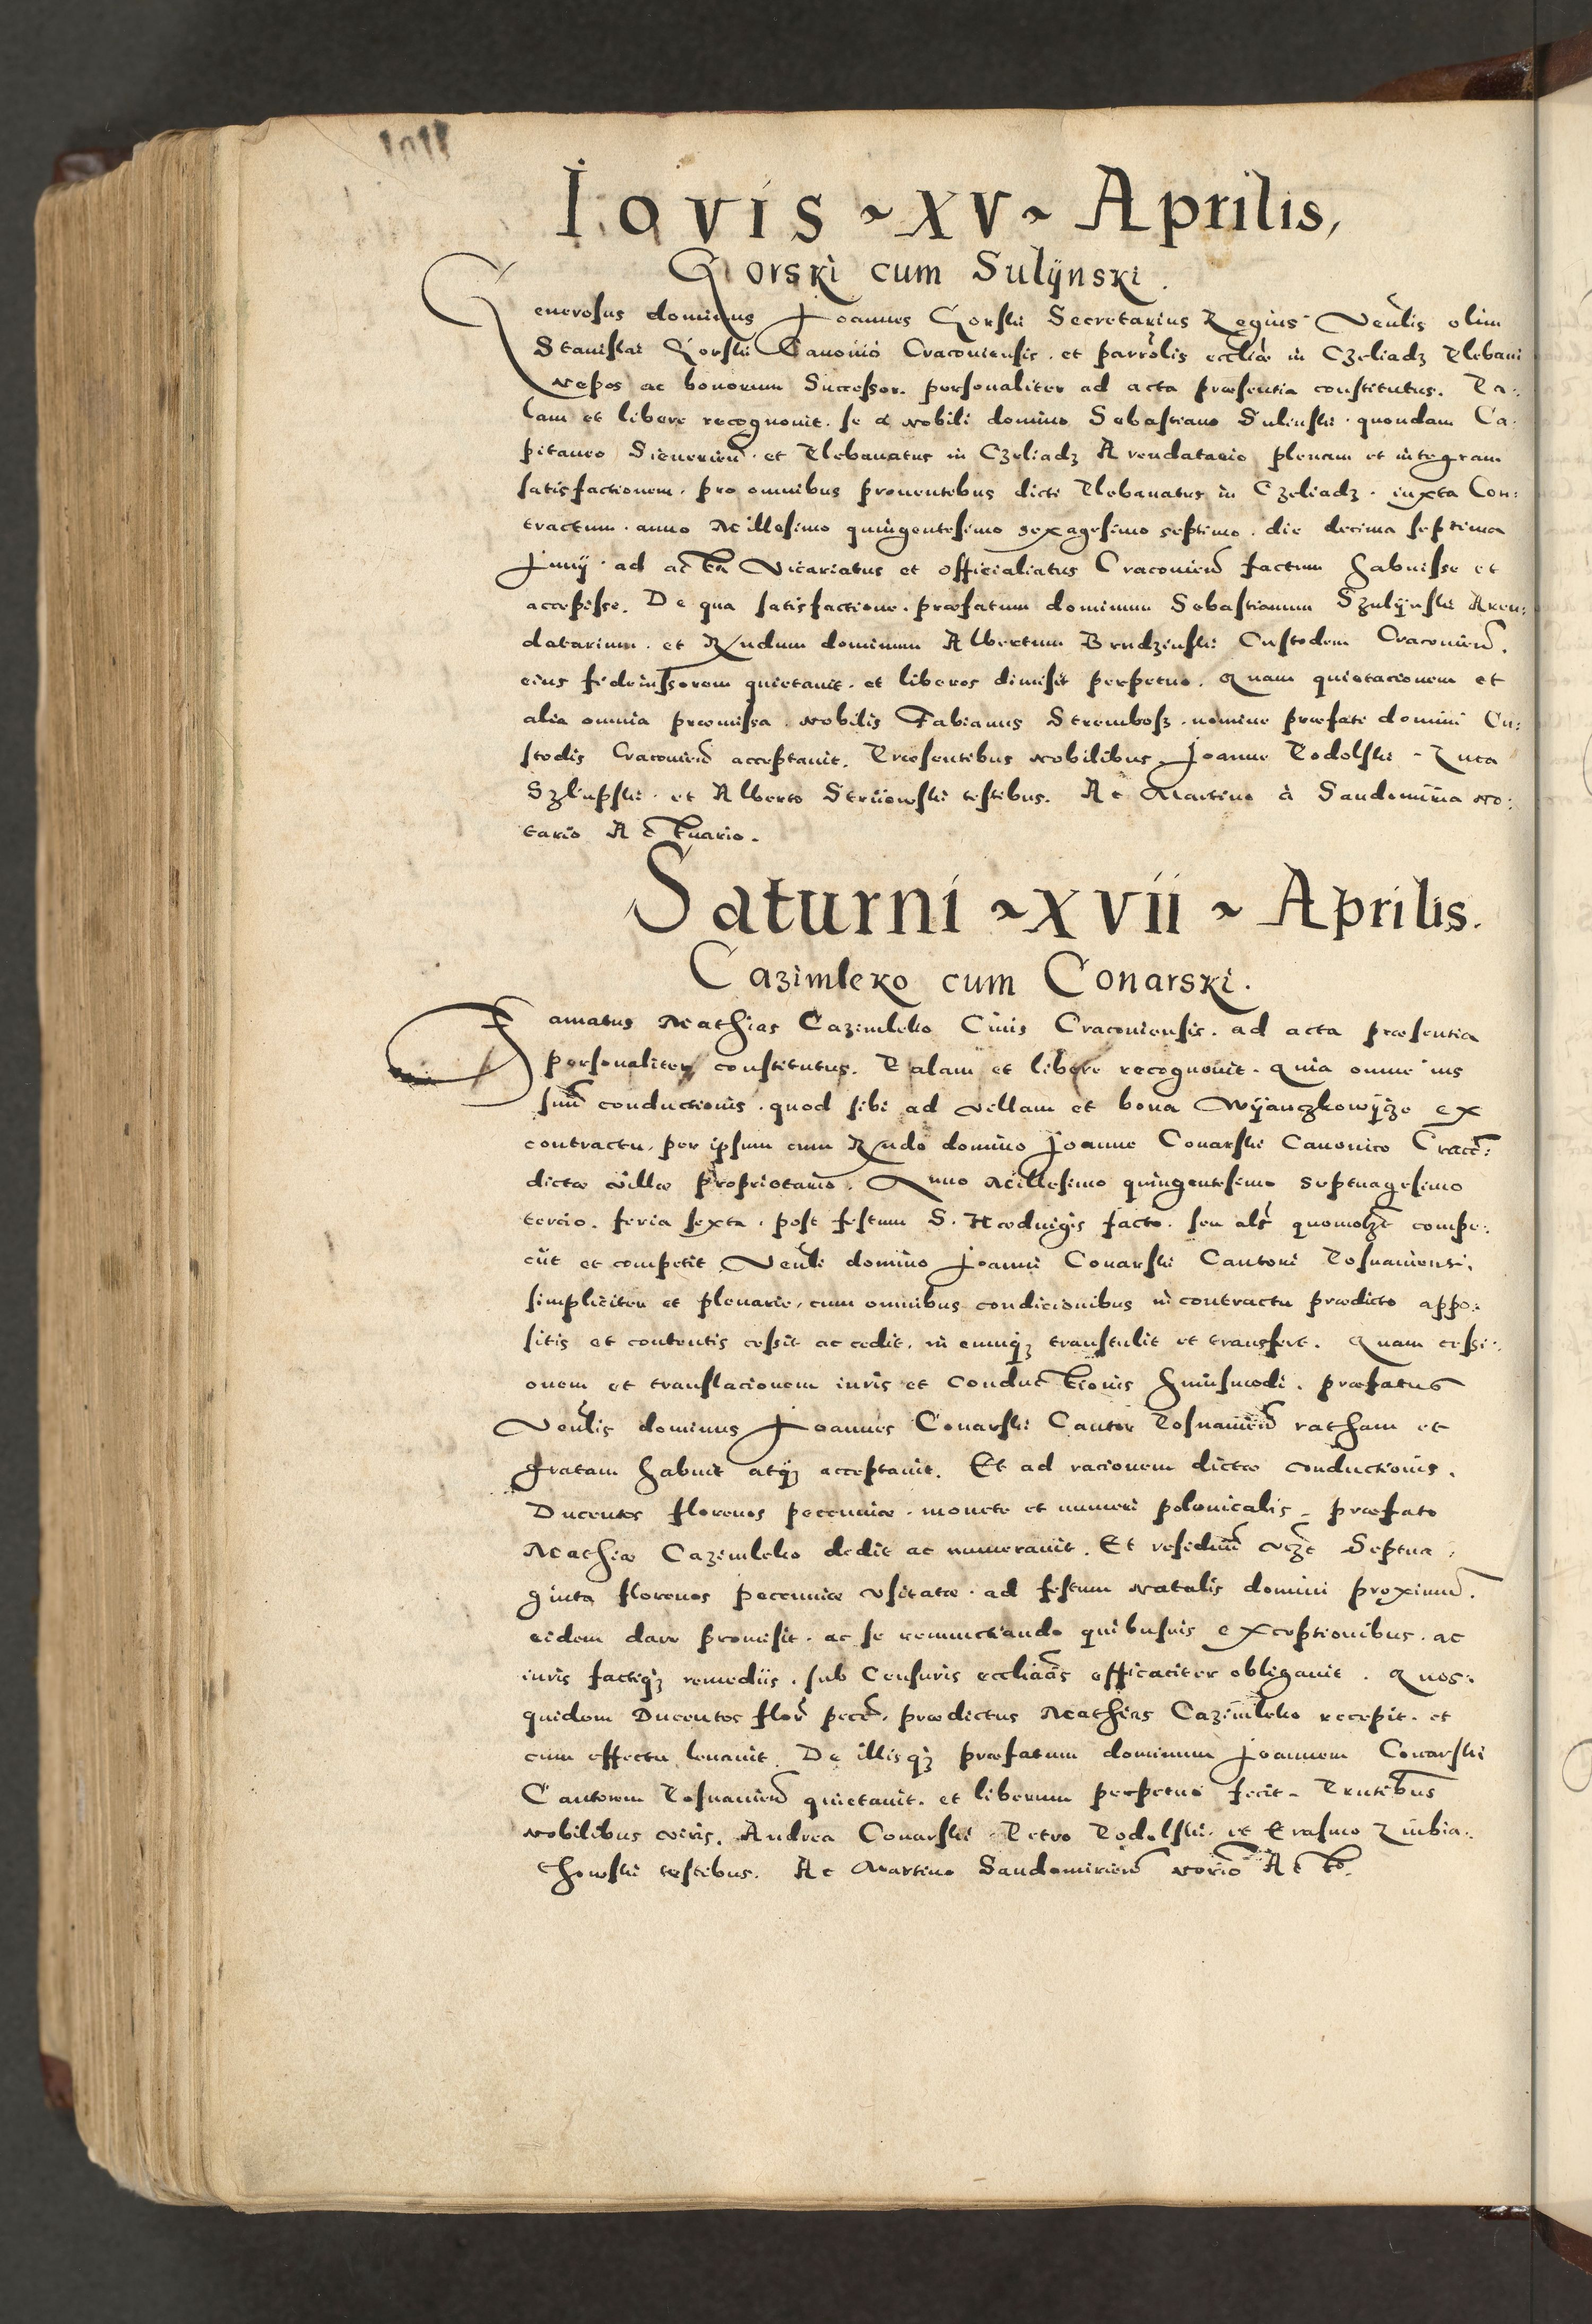 Iovis ~ XV ~ Aprilis,
Gorski cum Sulÿnski.
Generosus dominus Joannes Gorski Secretarius Regius Venlis olim
Stanislai Gorski Canonici Cracoviensis. et parrolis eccliæ in Czeliadz Plebani
Nepos ac bonorum Successor. personaliter ad acta præsentia constitutus. Pa:
lam et libere recognovit. se a Nobili domino Sebastiano Sulinski. quondam Ca:
pitaneo Sieverien. et Plebanatus in Czeliadz Arendatario plenam et integram
satisfactionem. pro omnibus proventibus dicti Plebanatus in Czeliadz. iuxta Con:
tractum. anno Millesimo quingentesimo sexagesimo septimo. die decima septima
Junij. ad acta Vicariatus et officialiatus Cracovien factum habuisse et
accepisse. De qua satisfactione. præfatum dominum Sebastianum Szulÿnski Aren:
datarium. et Rndum dominum Albertum Brudzinski Custodem Cracovien.
eius fideiussorem quietavit. et liberos dimisit perpetuo. Quam quietacionem et
alia omnia præmissa. Nobilis Fabianus Strembosz. nomine præfati domini Cu:
stodis Cracovien acceptavit. Præsentibus Nobilibus Joanne Podolski. Luca
Szlupski. et Alberto Striiowski testibus. Ac Martino à Sandomiria No:
tario Actuario.
Saturni ~ XVII ~ Aprilis.
Cazimleko cum Conarski.
Famatus Mathias Cazimleko Civis Cracoviensis. ad acta præsentia
personaliter constitutus. Palam et libere recognovit. quia omne ius
suu conductionis. quod sibi ad villam et bona Wÿanczkowÿze ex
contractu. per ipsum cum Rndo domino Joanne Conarski Canonico Cracc:
dictæ villæ proprietario. Anno Millesimo quingentesimo septuagesimo
tercio. feria sexta. post festum S. Hædvigis facto. seu alr quomolzt compe:
ciit et competit Venli domino Joanni Conarski Cantori Posnaniensi.
simpliciter et plenarie. cum omnibus condicionibus in contractu prædicto appo:
sitis et contentis cessit ac cedit. in eumqz transtulit et transfert. Quam cessi:
onem et translacionem iuris et conductionis huiusmodi. præfatus
Venlis dominus Joannes Conarski Cantor Posnanien ratham et
gratam habuit atqz acceptavit. Et ad racionem dictæ conductionis.
Ducentos florenos pecuniæ. monete et numeri polonicalis. præfato
Mathiæ Cazimleko dedit ac numeravit. Et residuu vzt Septua:
ginta florenos pecuniæ usitatæ. ad festum Natalis domini proximu.
eidem dare promisit. ac se renunctiando quibusvis exceptionibus. ac
iuris factiqz remediis. sub Censuris eccliacis efficaciter obligavit. Quos:
quidem Ducentos flor pecc. prædictus Mathias Cazimleko recepit. et
cum effectu levavit. De illisqz præfatum dominum Joannem Conarski
Cantorem Posnanien quietavit. et liberum perpetuo fecit. Pentibus
Nobilibus viris. Andrea Conarski. Petro Podolski. et Erasmo Zimbia:
thowski testibus. Ac Martino Sandomirien Norio Act.